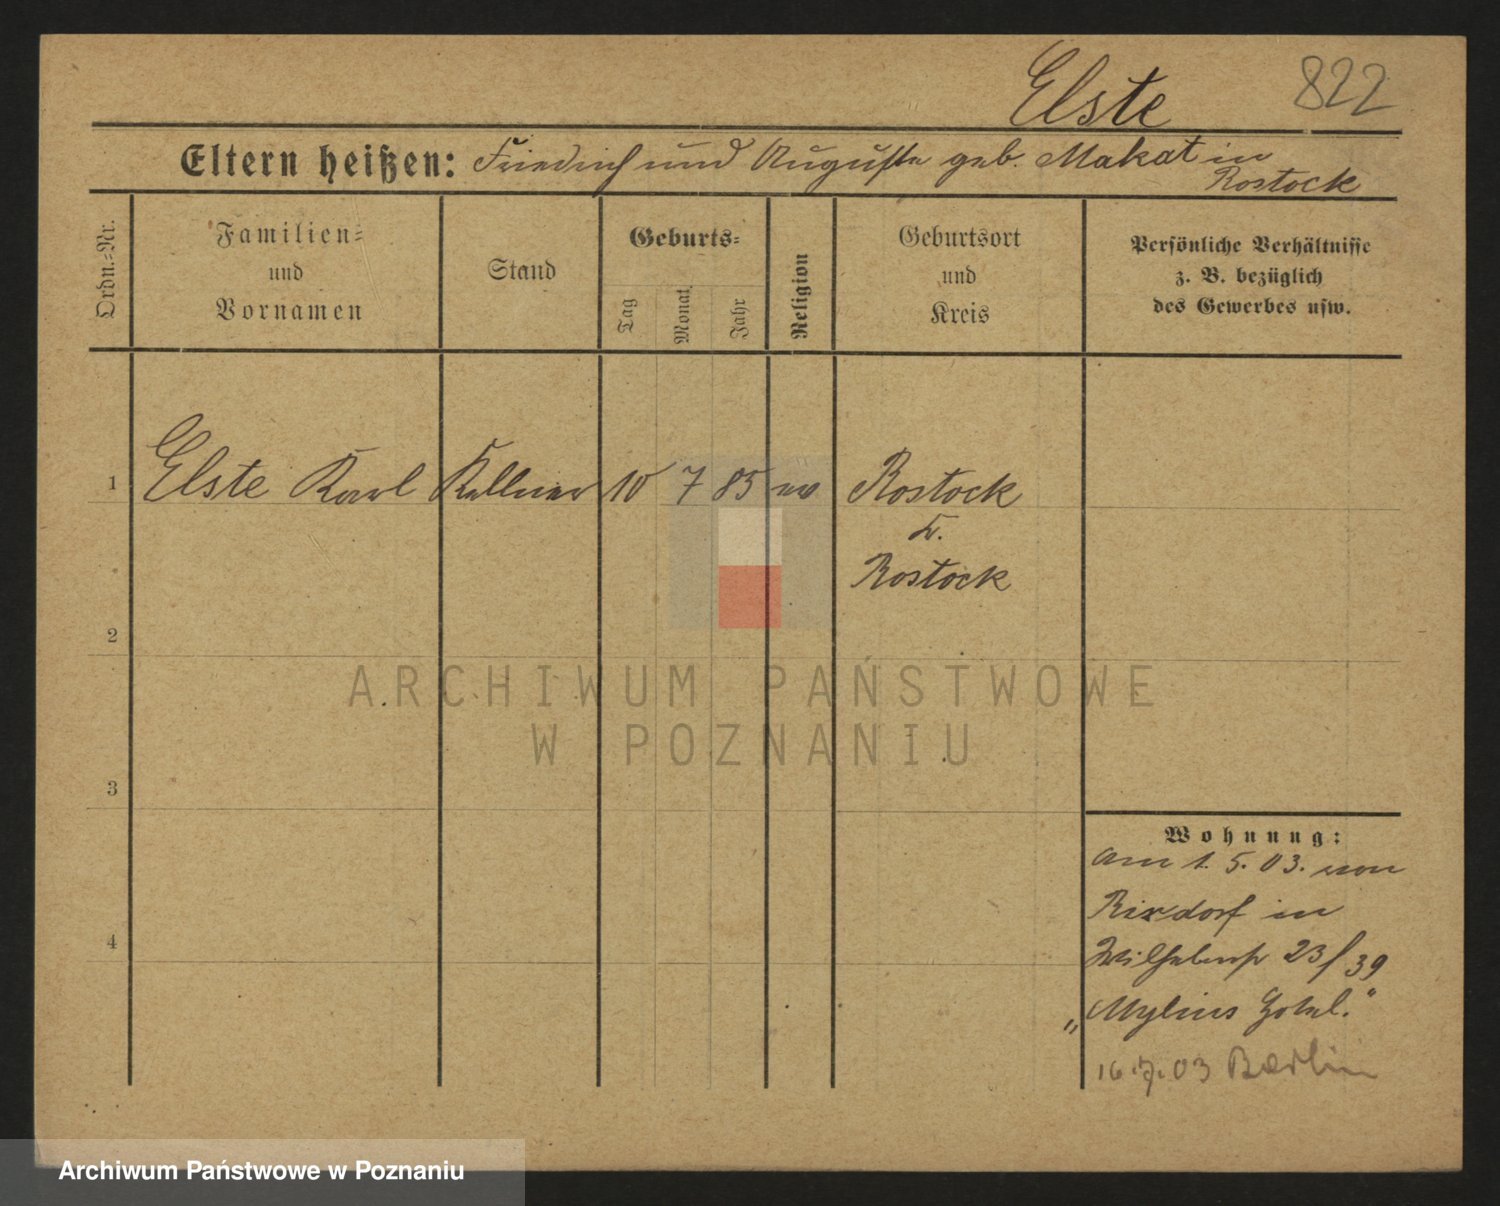 Elste 822
Eltern heißen: Friedrich und Auguste geb. Makat in
Rostock
Ordn.=Nr.
Familien=
und
Vornamen
Stand
Geburts=
Tag
Monat
Jahr
Religion
Geburtsort
und
Kreis
Persönliche Verhältnisse
z. B. bezüglich
des Gewerbes usw.
1 Elste Karl Kellner 10 7 85 ev Rostock
K.
Rostock
2
3
4
Wohnung:
am 1. 5. 03. von
Rixdorf in
Wilhelmstr 23/39
„Mylius Hotel."
16.7.03 Berlin
ARCHIWUM PAŃSTWOWE
W POZNANIU
Archiwum Państwowe w Poznaniu